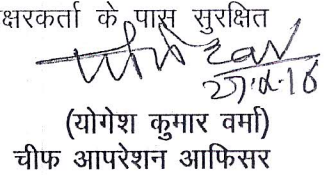 क्षरकर्ता के पास सुरक्षित
(योगेश कुमार वर्मा)
चीफ आपरेशन आफिसर